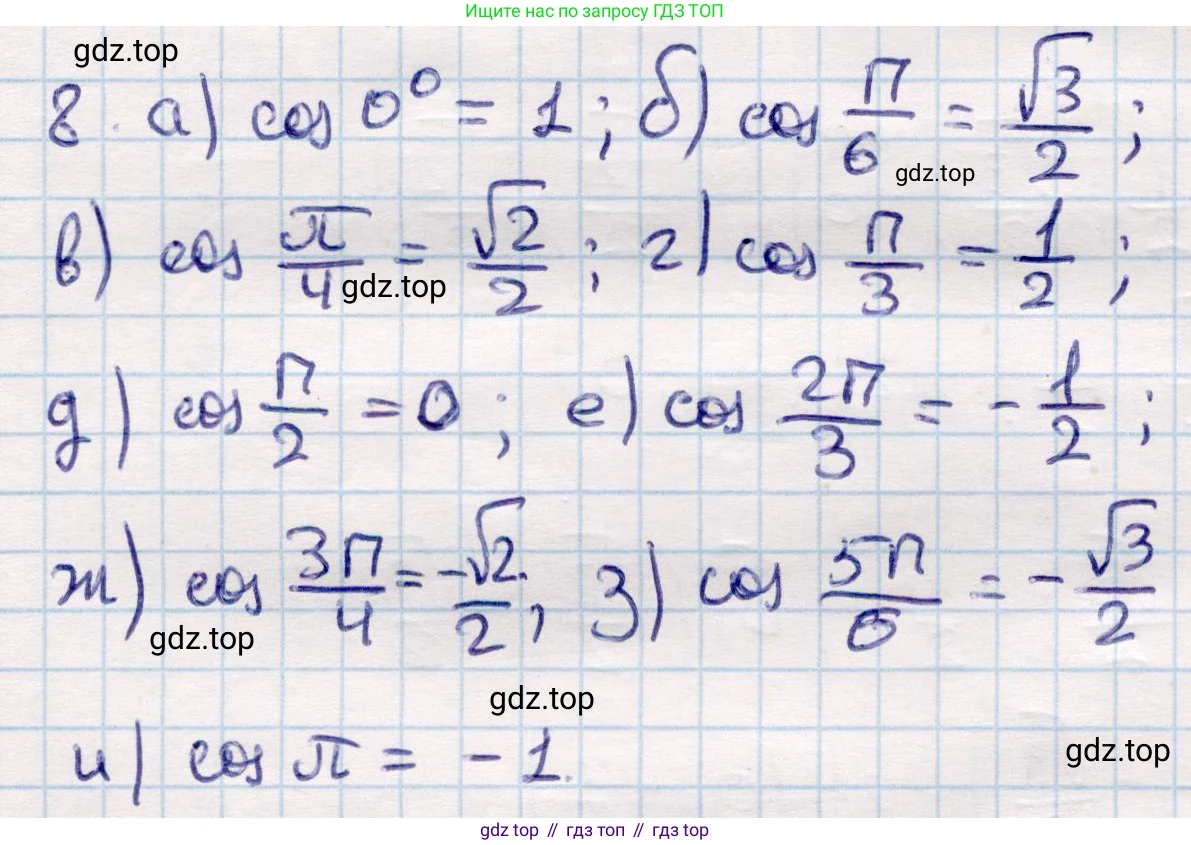 Ищите нас по запросу ГДЗ ТОП
gdz.top
8. а) cos 0° = 1; б) cos π/6 = √3/2;
gdz.top
в) cos π/4 = √2/2; г) cos π/3 = 1/2;
gdz.top
д) cos π/2 = 0; е) cos 2π/3 = -1/2;
ж) cos 3π/4 = -√2/2; з) cos 5π/6 = -√3/2
gdz.top
gdz.top
и) cos π = -1.
gdz.top
gdz top // гдз топ // gdz top